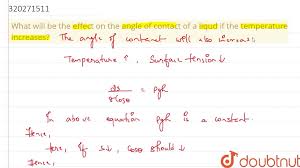 320271511
What will be the effect on the angle of contact of a liqud if the temperature
increases? The angle of contant will also increase.
Temperature ↑, Surface tension ↓
2s / rcosθ = ρgh
In above equation ρgh is a constant.
Hence,
here, if s↓, cosθ should ↓
Hence,
doubtnut